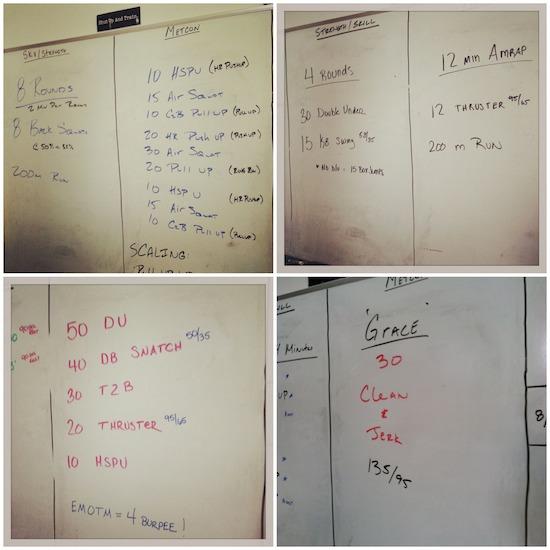 Shut Up And Train
METCON
8 Rounds
8 Back Squats
200m Run
10 HSPU (HR PUSHUP)
15 Air Squat
10 C2B Pull up (Pullup)
20 HR Push up (Pushup)
30 Air Squat
20 Pull up
10 HSPU (HR Pushup)
15 Air Squat
10 C2B Pull up (Pullup)
SCALING:
STRENGTH/SKILL
4 Rounds
30 Double Under
15 KB Swing
12 min AMRAP
12 THRUSTER 95/65
200 m RUN
50 DU
40 DB SNATCH 50/35
30 T2B
20 THRUSTER 95/65
10 HSPU
EMOTM = 4 BURPEE!
METCON
"GRACE"
30
Clean
&
Jerk
135/95
Minutes